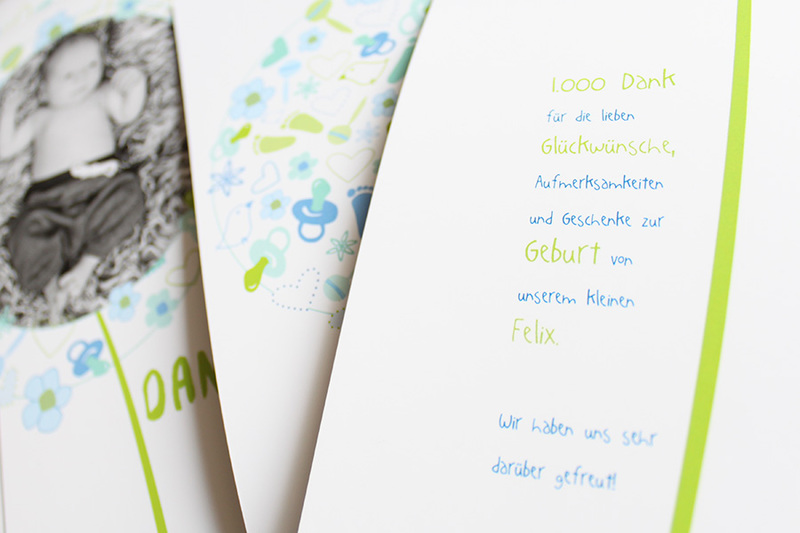 1.000 Dank
für die lieben
Glückwünsche,
Aufmerksamkeiten
und Geschenke zur
Geburt von
unserem kleinen
Felix.
Wir haben uns sehr
darüber gefreut!
DAN